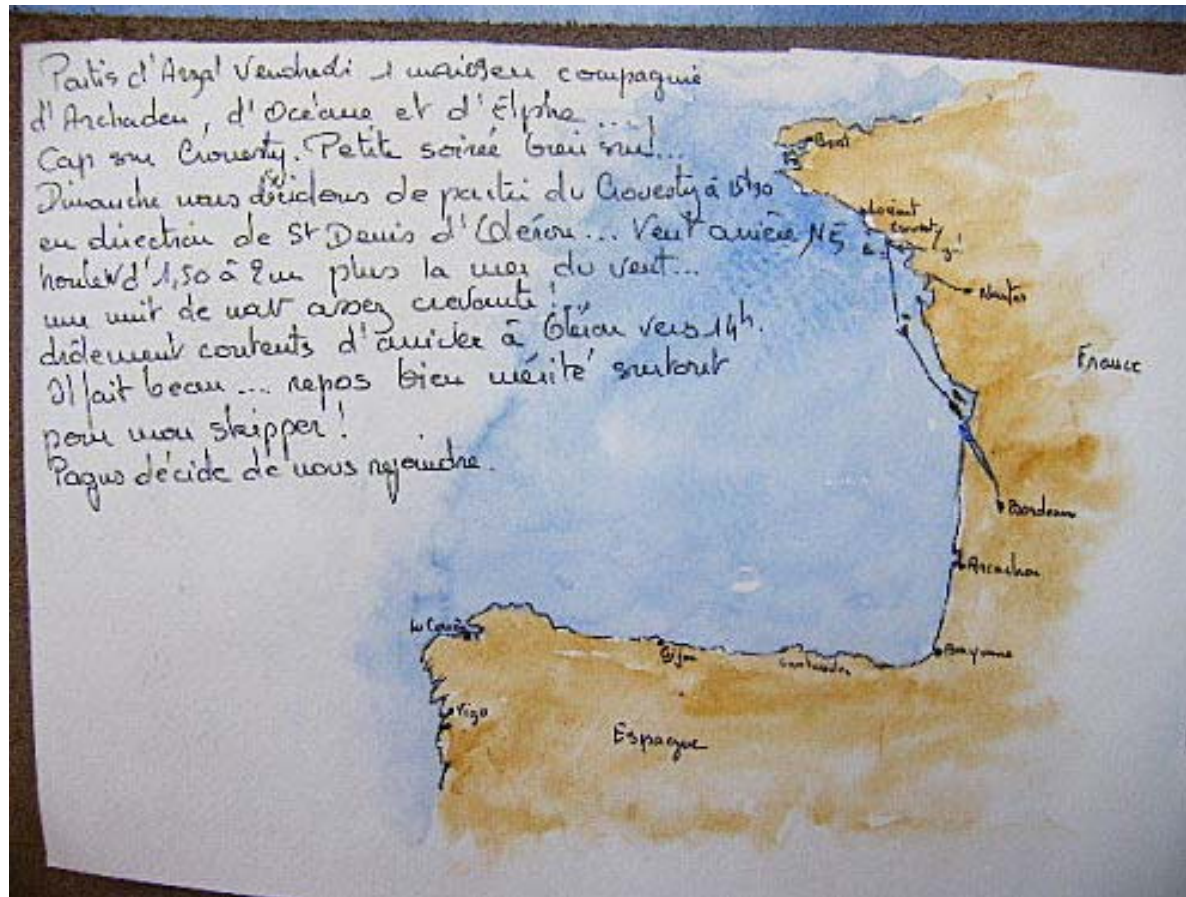 Partis d'Arzal Vendredi 1 mai en compagnie
d'Archaden, d'Océane et d'Elpha ....
Cap sur Crouesty. Petite soirée bien sur!...
Dimanche nous décidons de partir du Crouesty à 15h30
en direction de St Denis d'Oléron... Vent arrière N5
houle d'1,50 à 2m plus la mer du vent...
une nuit de nav assez crevante!...
drôlement contents d'arriver à Oléron vers 14h.
Il fait beau.... repos bien mérité surtout
pour mon skipper!
Pagus décide de nous rejoindre.
Brest
Lorient
Crouesty
Nantes
France
Bordeaux
Arcachon
Bayonne
Santander
Gijon
La Corogne
Vigo
Espagne